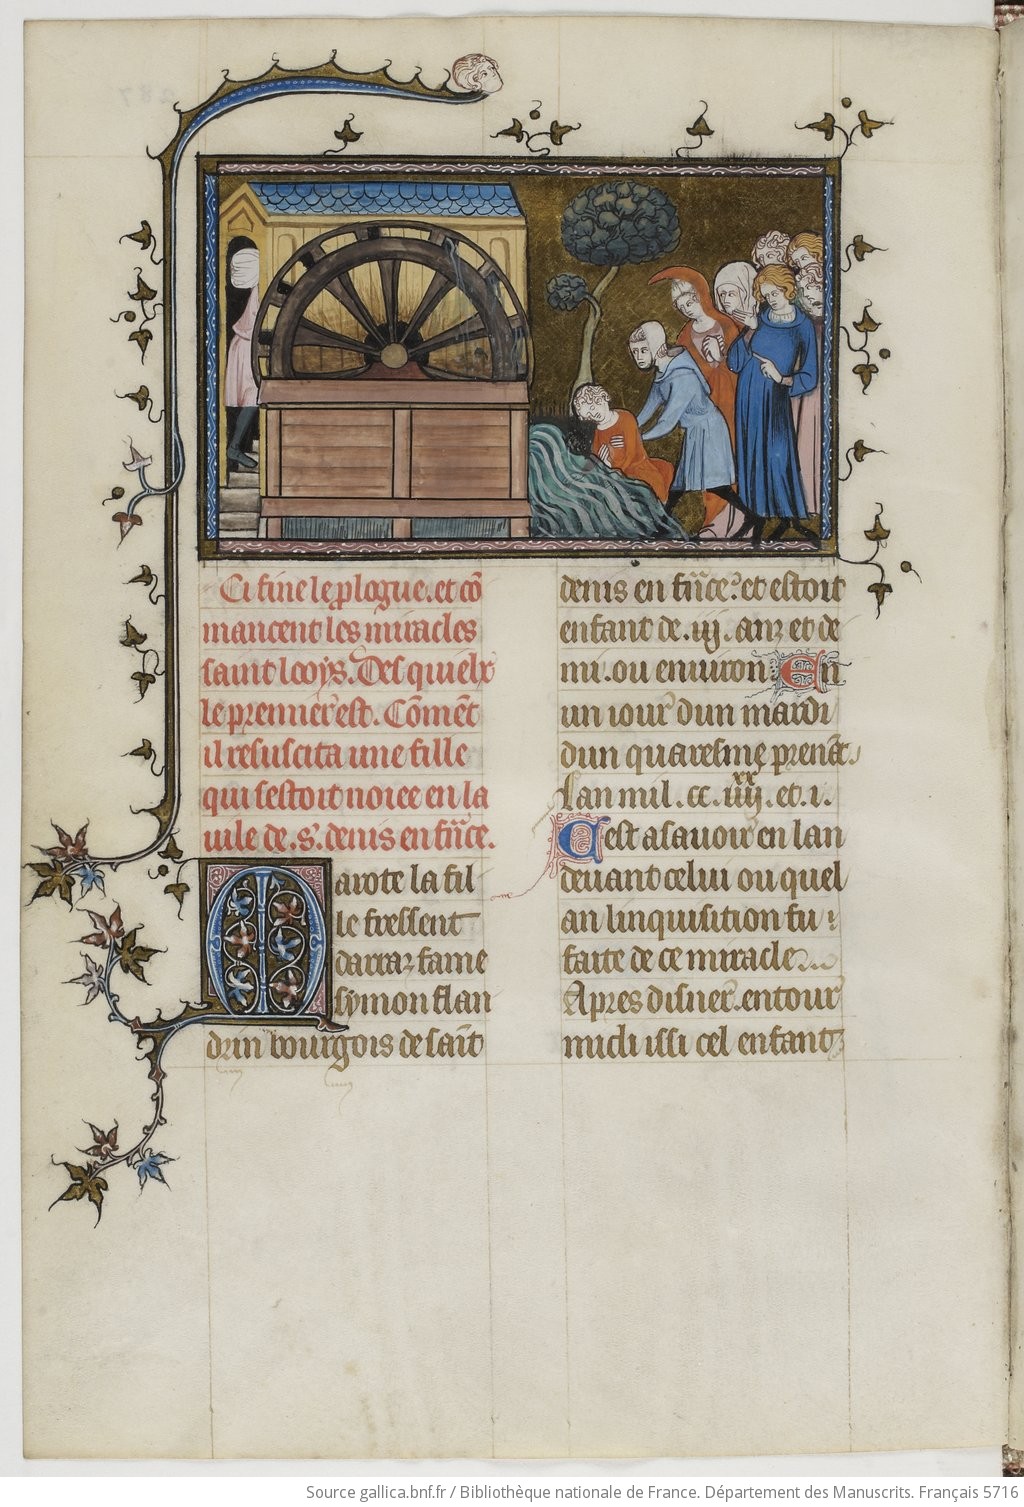 Ci fine le plogue. et cō
mancent les miracles
saint looys. Des quielx
le prennier est. Cōment
il resuscita une fille
qui sestoit noiee en la
uile de .s. denis en frāce.
Marote la fil
le fressent
darraz fame
symon flan
drin bourgois de saīt
denis en frāce. et estoit
enfant de .iij. anz et de
mi. ou enuiron En
un iour dun mardi
dun quaresme prenāt.
Lan mil .cc. iiij.xx et .i.
Cest asauoir en lan
deuant celui ou quel
an linquisition fu
faite de ce miracle
Apres disner. entour
midi issi cel enfant
Source gallica.bnf.fr / Bibliothèque nationale de France. Département des Manuscrits. Français 5716